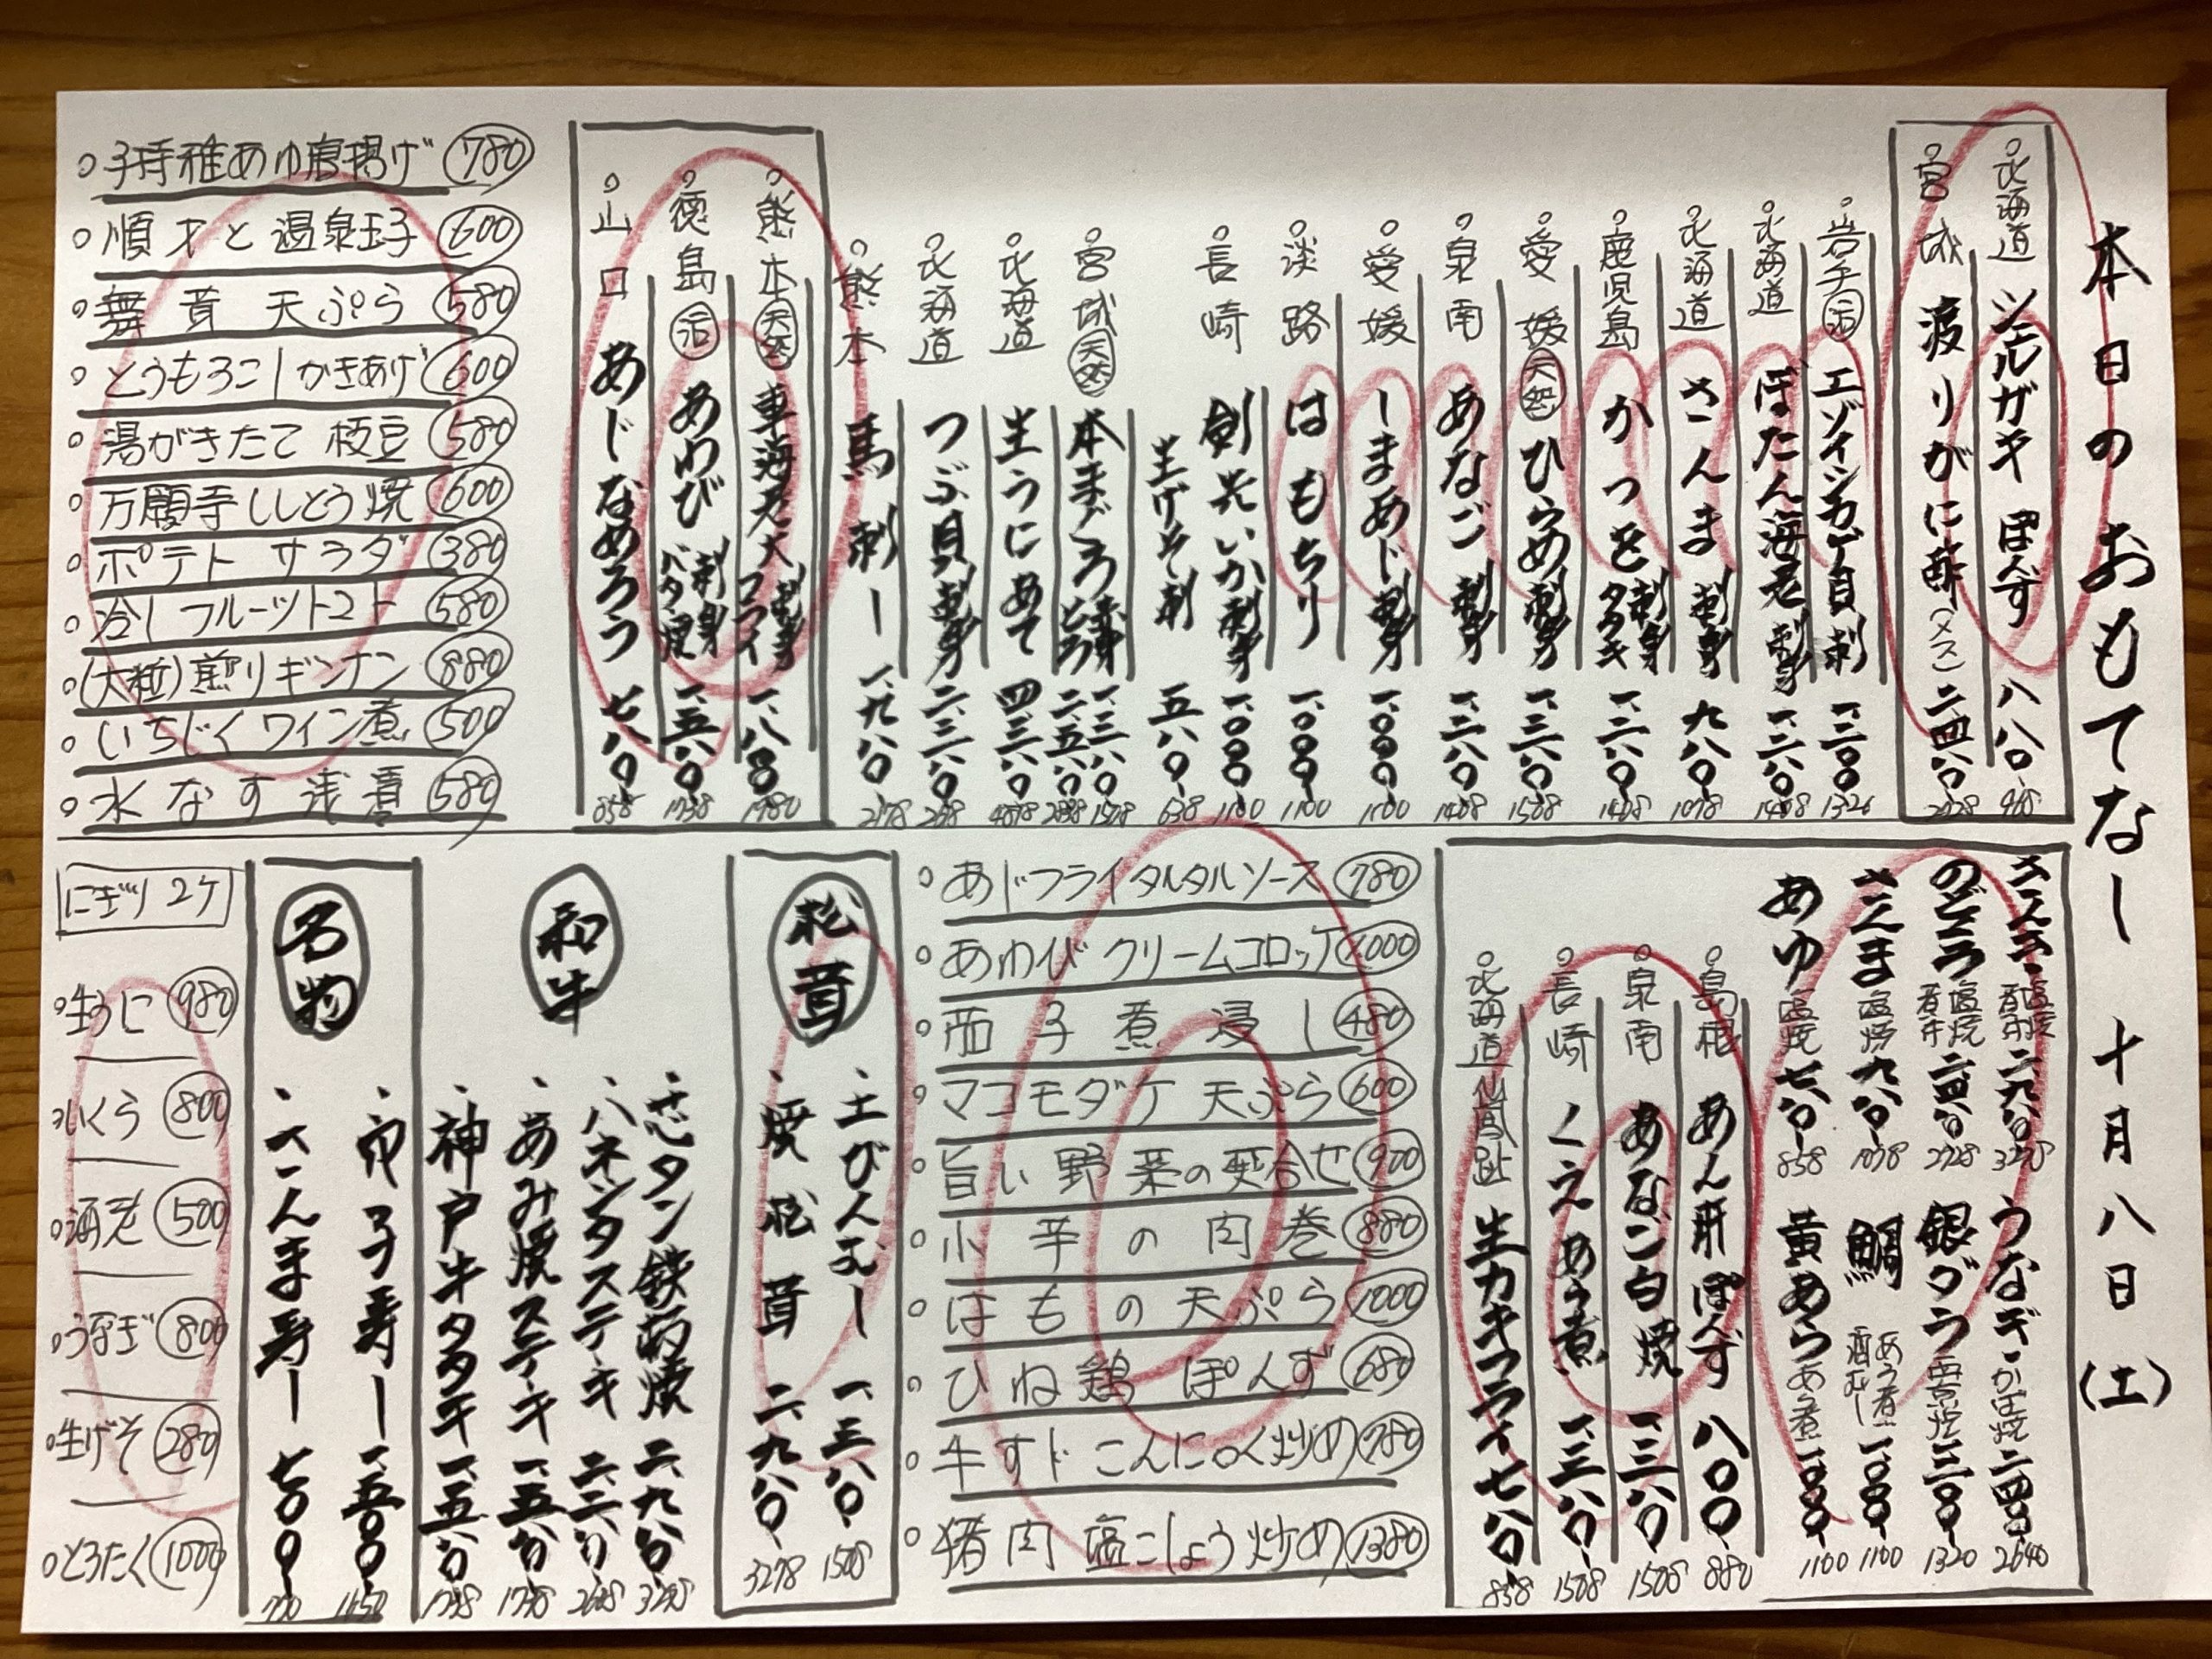 本日のおもてなし 十月八日(土)
北海道 シモルガキ ぽんず 八八〇 968
宮城 渡りがに酢(メス) 二四八〇 2728
岩手 活 エゾイシカゲ貝刺 一、二〇〇
北海道 ぼたん海老 刺身 一、二八〇 1408
北海道 さんま 刺身 九八〇 1078
鹿児島 かつを 刺身 タタキ 一、二八〇 1408
愛媛 天然 ひらめ 刺身
泉南 あなご 刺身 一、二八〇 1408
愛媛 しまあじ 刺身 一、〇〇〇 1100
淡路 はもちり 一、〇〇〇 1100
長崎 剣先いか 刺身 一、〇〇〇 1100
生げそ 刺 五八〇 638
宮城 天然 本まぐろ
北海道 生うにあて
北海道 つぶ貝 刺身
熊本 馬刺し 一、九八〇 2178
熊本 天然 車海老 大 刺身 フライ 一、八〇〇 1980
徳島 活 あわび 刺身 バタ焼 一、五八〇 1738
山口 あじなめろう 七八〇 858
子持稚あゆ唐揚げ 780
順才と温泉玉子 600
舞茸天ぷら 580
とうもろこしかきあげ 600
湯がきたて枝豆 580
万願寺ししとう焼 600
ポテトサラダ 380
冷しフルーツトマト 580
(大粒)煎りギンナン 880
いちじくワイン煮 500
水なす浅漬 580
のどぐろ 塩焼 煮付 二、四八〇 2728
さんま 塩焼 九八〇 1078
あゆ 塩焼 七八〇 858
うなぎ かば焼 二、四〇〇 2640
銀ダラ 西京焼 一、二〇〇 1320
鯛 あら煮 酒むし 一、〇〇〇 1100
黄あら あら煮 一、〇〇〇 1100
島根 あん肝ぽんず 八〇〇 880
泉南 あなご白焼 1508
長崎 くえあら煮 1508
北海道 仙鳳趾 生カキフライ 七八〇 858
あじフライタルタルソース 780
あわびクリームコロッケ 1000
茄子煮浸し 480
マコモダケ天ぷら 600
旨い野菜の炊合せ 900
小芋の肉巻 880
はもの天ぷら 1000
ひね鶏ぽんず 680
牛すじこんにゃく炒め 780
猪肉塩こしょう炒め 1380
松茸
土びんむし 1508
焼松茸 二、九八〇 3278
和牛
芯タン鉄板焼 二、九八〇 3278
ハネシタステーキ
あみ焼ステーキ 一、五八〇 1738
神戸牛タタキ 一、五八〇 1738
名物
穴子寿し 一、五〇〇 1650
さんま寿し 七〇〇 770
にぎり 2ケ
生うに 980
いくら 800
海老 500
うなぎ 800
生げそ 280
とろたく 1000